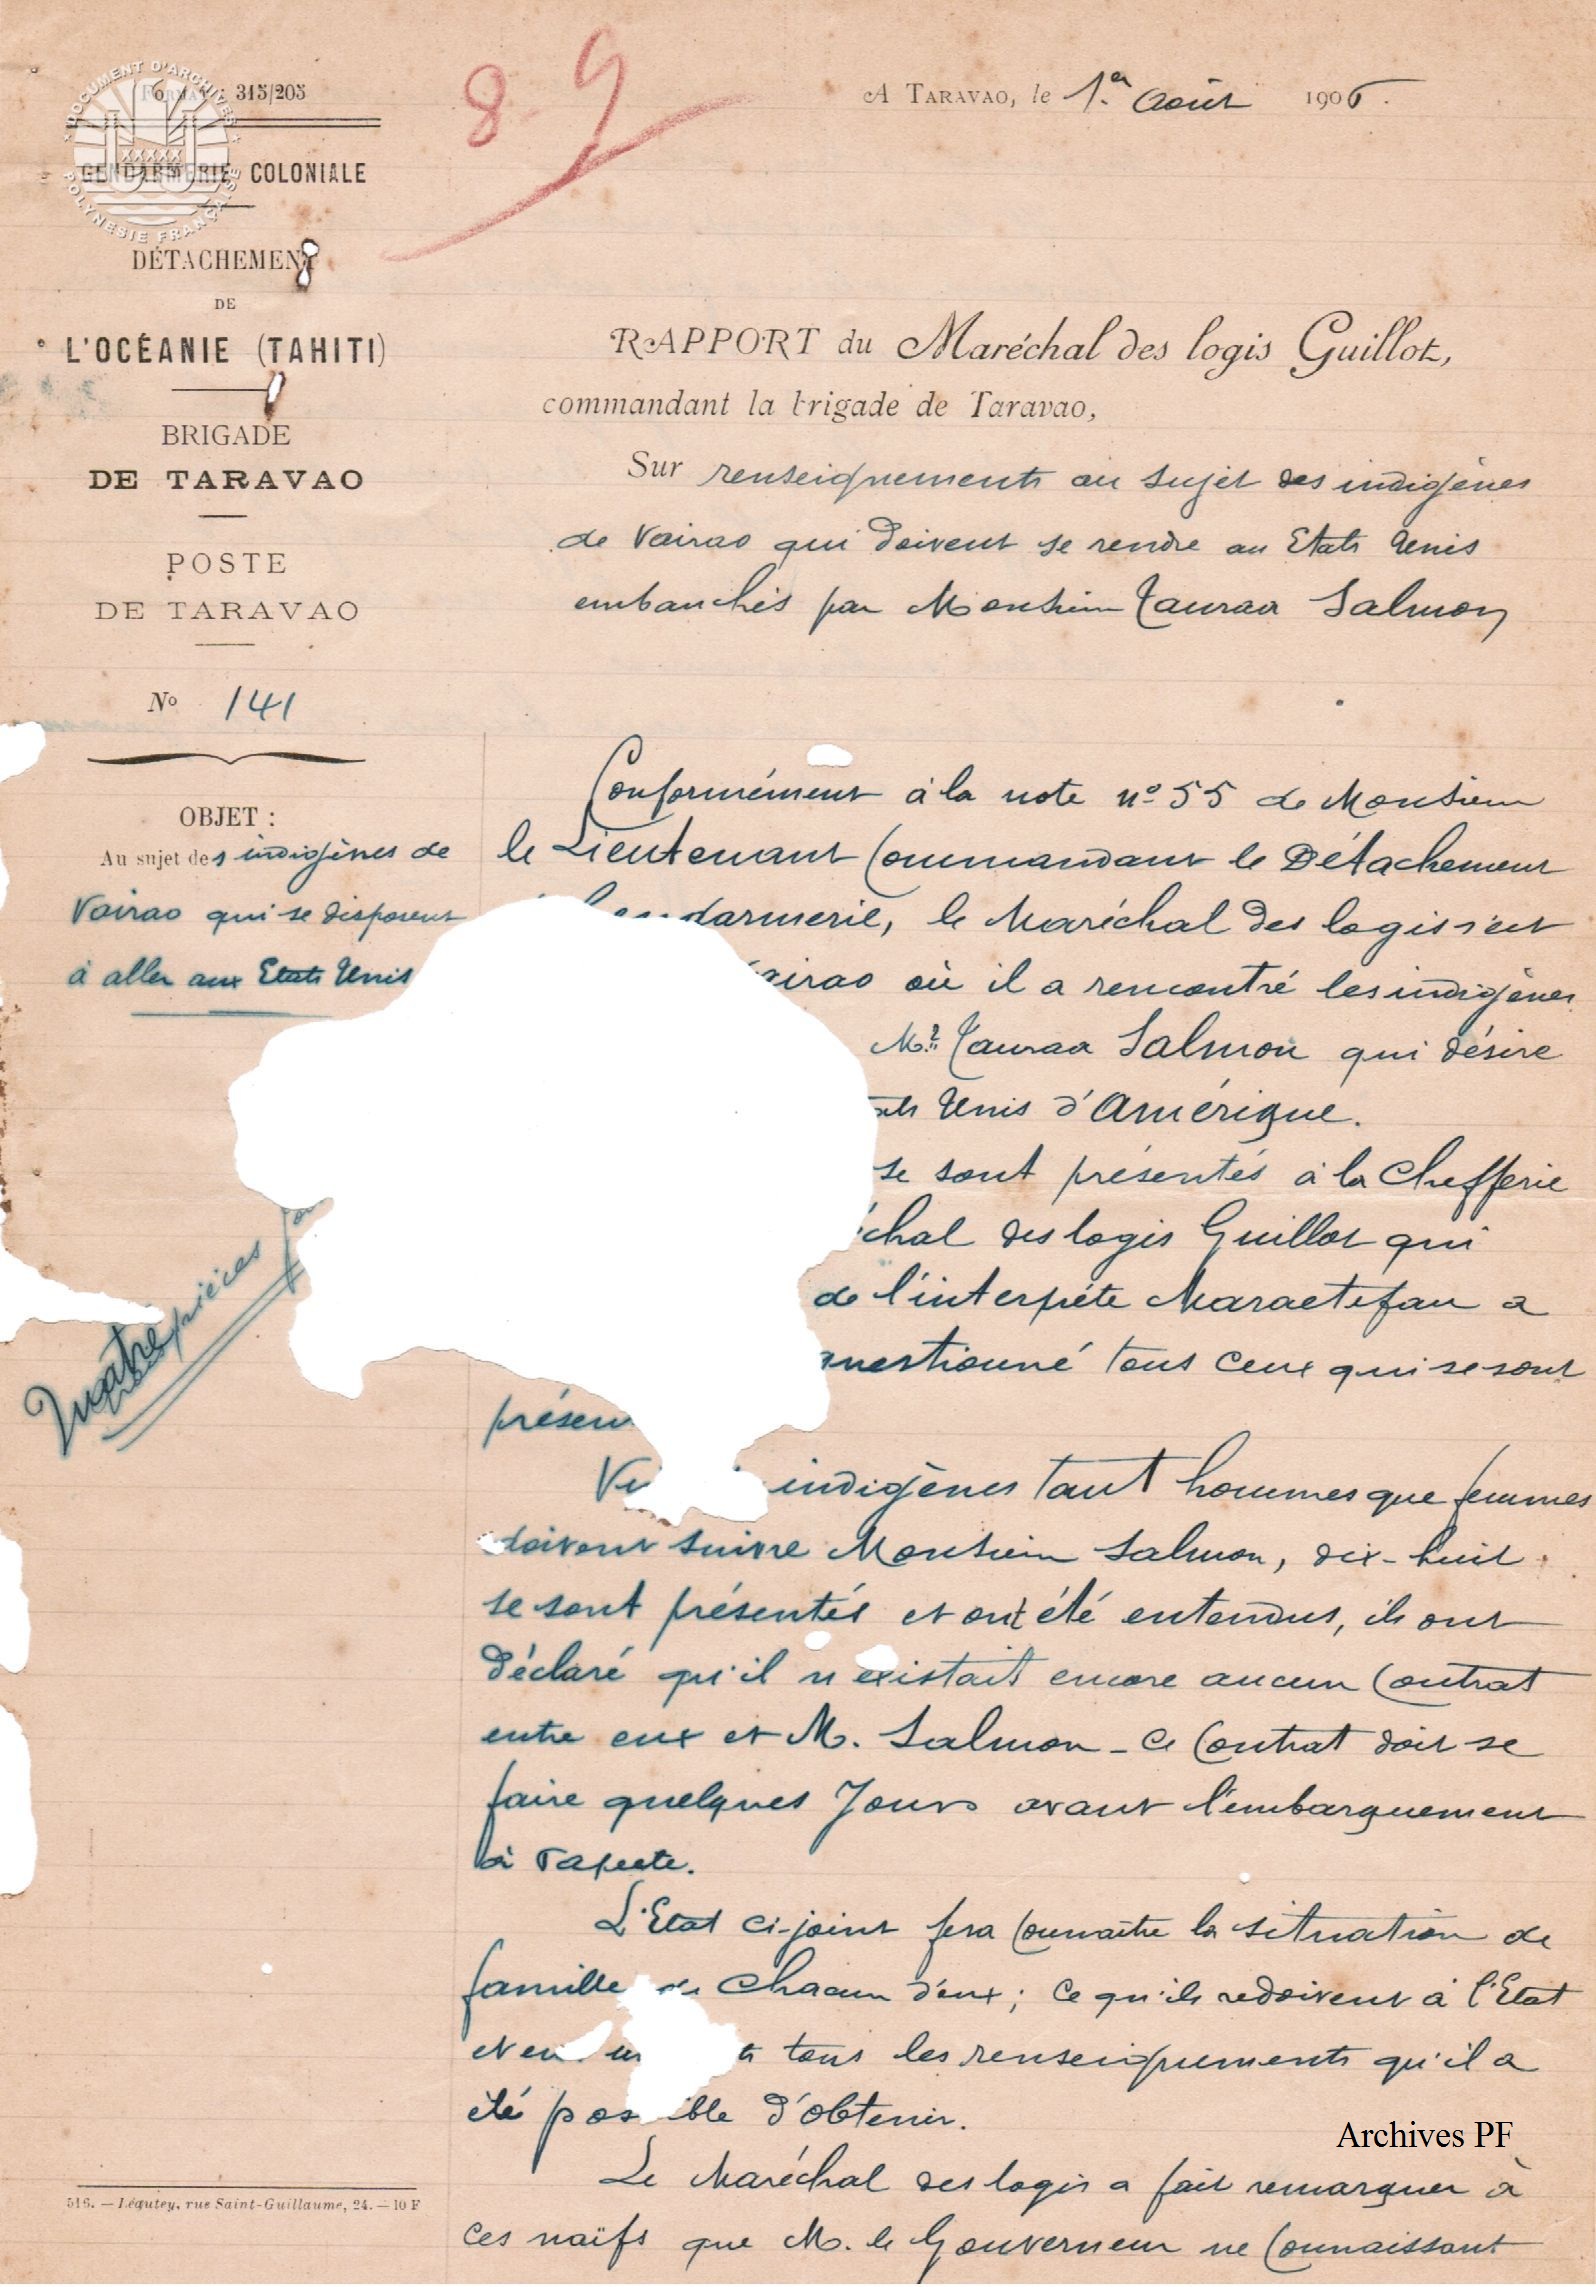 DOCUMENT D'ARCHIVES
POLYNESIE FRANÇAISE
Format : 315/205
8-9
A TARAVAO, le 1er août 1906.
GENDARMERIE COLONIALE
DÉTACHEMENT
DE
L'OCÉANIE (TAHITI)
BRIGADE
DE TARAVAO
POSTE
DE TARAVAO
No 141
OBJET :
Au sujet des indigènes de
Vairao qui se disposent
à aller aux Etats Unis
Quatre pièces
RAPPORT du Maréchal des logis Guillot,
commandant la brigade de Taravao,
Sur renseignements au sujet des indigènes
de Vairao qui doivent se rendre au Etats Unis
embauchés par Monsieur Tauraa Salmon
Conformément à la note no 55 de Monsieur
le Lieutenant Commandant le Détachement
darmerie, le Maréchal des logis s'est
airao où il a rencontré les indigènes
Mr Tauraa Salmon qui désire
ats Unis d'Amérique.
se sont présentés à la Chefferie
échal des logis Guillot qui
de l'interpète Maraetefau a
questionné tous ceux qui se sont
présen
indigènes tant hommes que femmes
doivent suivre Monsieur Salmon, dix-huit
se sont présentés et ont été entendus, ils ont
déclaré qu'il n'existait encore aucun Contrat
entre eux et M. Salmon - Ce Contrat doit se
faire quelques Jours avant l'embarquement
à Papeete.
L'Etat ci-joint fera connaître la situation de
famille de Chacun d'eux ; Ce qu'ils redoivent à l'Etat
et en un tous les renseignements qu'il a
été possible d'obtenir.
Le Maréchal des logis a fait remarquer à
Ces naïfs que M. le Gouverneur ne Connaissant
516. — Léautey, rue Saint-Guillaume, 24. — 10 F
Archives PF